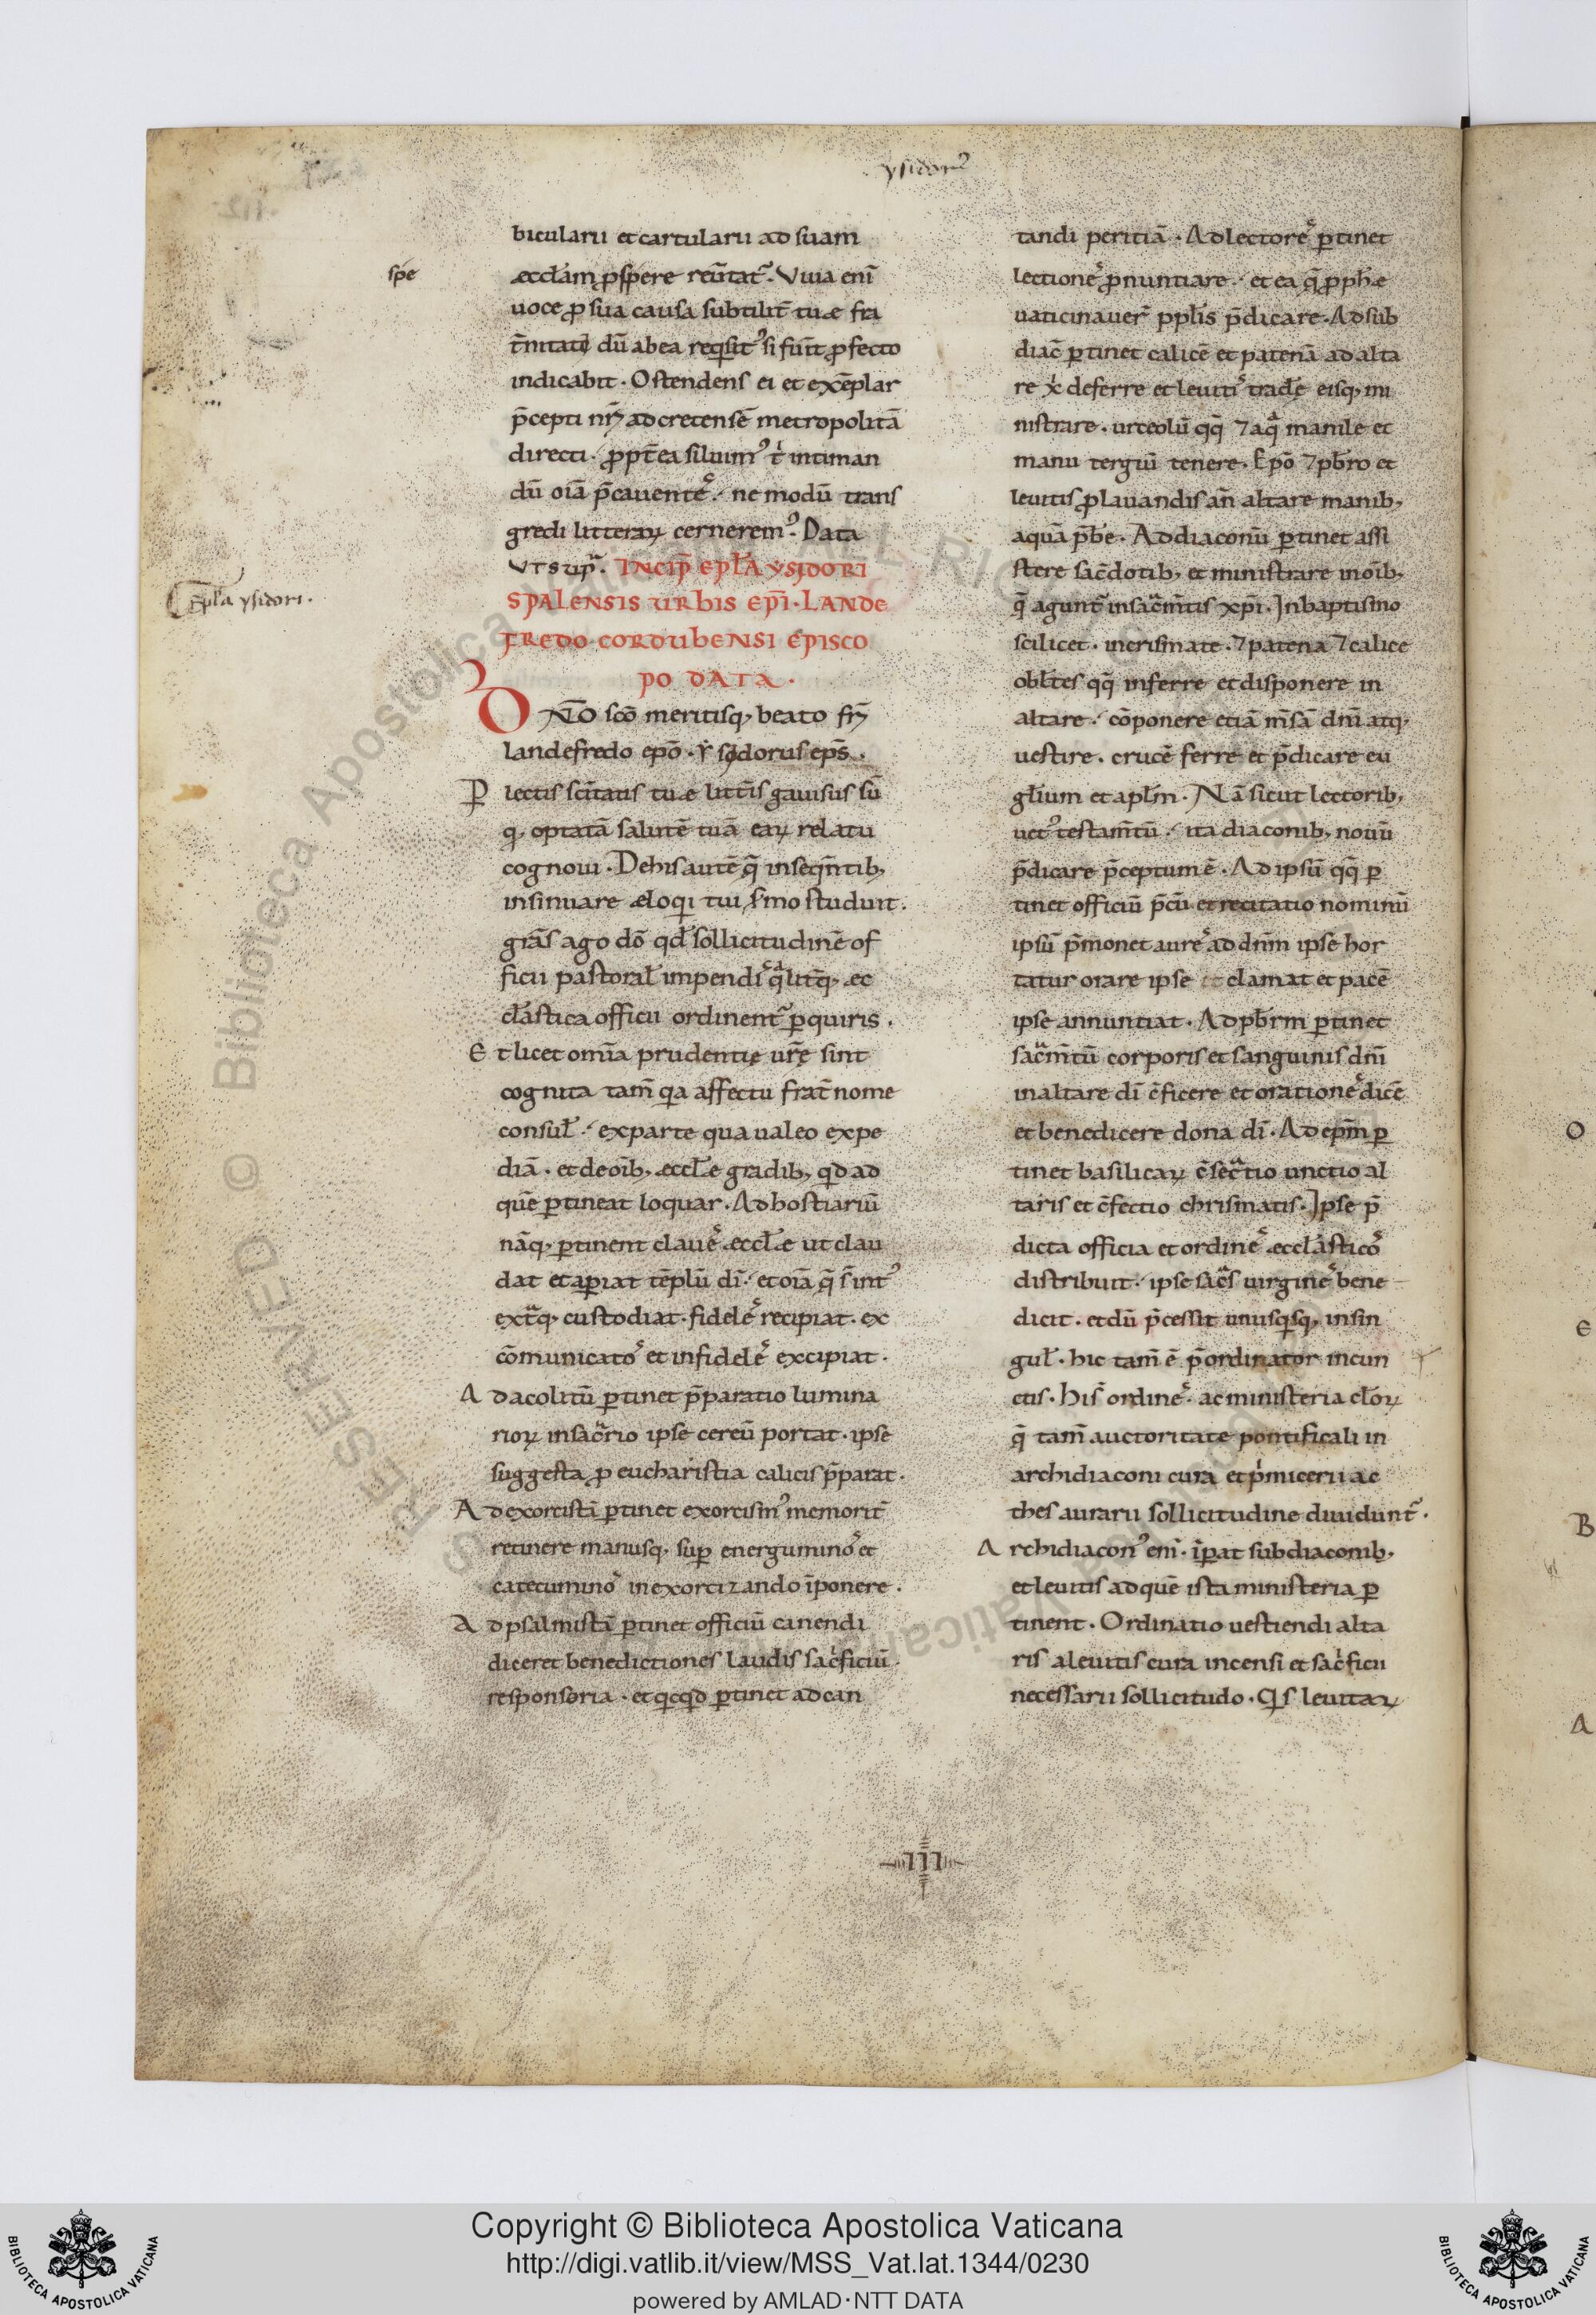 ysidorꝰ
bicularii et cartularii ad suam
spe
æccl̄am ꝓspere reūtat᷑. Viua eni̅
uoce ꝓ sua causa subtilit̅ tuæ fra
t̅nitati dū ab ea reqisit᷑ si fūit ꝓfecto
indicabit. Ostendens ei et exēplar
p̄cepti nr̄i ad cretensē metropolitā
directi. ꝓpt̄ea siluimꝰ t̕ intiman
dū oīa p̄cauentes. ne modū trans
gredi litteraꝝ cerneremꝰ. Data
ut supͣ. INCIP̄ EPL̄A YSIDORI
SPALENSIS URBIS EPĪ. LANDE
FREDO CORDUBENSI EPISCO
PO DATA.
Ep̄la ysidori.
DN̄O sc̄o meritisq; beato fr̄i
landefredo epō. Ysydorus ep̄s.
Ꝑlectis sc̄itatis tuæ litt̄is gauisus sū
q; optatā salutē tuā eaꝝ relatu
cognoui. De his autē q̄ in seqn̄tib;
insinuare æloqi tui s̄mo studuit.
grās ago dō qd̄ sollicitudinē of
ficii pastoral̄ impendis qͣlit̄q; æc
cl̄astica officii ordinent᷑ ꝑquiris.
Et licet omīa prudentię ur̄ę sint
cognita tam̄ qia affectu frat̄no me
consul̄. ex parte qua ualeo expe
diā. et de oīb; æccl̄e gradib; qd ad
quē ꝑtineat loquar. Ad hostiariū
nāq; ꝑtinent claues æccl̄æ ut clau
dat et aꝑiat tēplū dī. et oīa q̄ s̄ intꝰ
extͣq; custodiat. fideles recipiat. ex
cōmunicatos et infideles excipiat.
Ad acolitū ꝑtinet p̄paratio lumina
rioꝝ in sac̄rio ipse cereū portat. ipse
suggesta ꝓ eucharistia calicis p̄parat.
Ad exorcistā ꝑtinet exorcismꝰ memorit̄
retinere manusq; suꝑ energuminos et
catecuminos in exorcizando īponere.
Ad psalmistā ꝑtinet officiū canendi
diceret benedictiones laudis sac̍ficiū.
responsoria. et qicqid ꝑtinet ad can
tandi peritiā. Ad lectores ꝑtinet
lectiones ꝓnuntiare. et ea q̄ ꝓphæ
uaticinauer̄ ppl̄is p̄dicare. Ad sub
diac̄ ꝑtinet calicē et patenā ad alta
re xp̍i deferre et leuitis trad̄e eisq; mi
nistrare. urceolū qq̄ ⁊ aqͣ manile et
manu tergiū tenere. Epō ⁊ pb̄ro et
leuitis ꝓ lauandis an̄ altare manib;
aquā p̄be. Ad diaconū ꝑtinet assi
stere sac̄dotib; et ministrare in oīb;
q̄ agunt᷑ in sacͣm̄tis xp̄i. In baptismo
scilicet. in crismate. ⁊ patena ⁊ calice
obl̄tes qq̄ inferre et disponere in
altare. cōponere etiā m̄sā dn̄i atq;
uestire. crucē ferre et p̄dicare eu
gl̄ium et apl̄m. Nā sicut lectorib;
uetꝰ testam̄tū. ita diaconib; nouū
p̄dicare p̄ceptum ē. Ad ipsū qq̄ ꝑ
tinet officiū p̄cū et recitatio nominū
ipsū p̄monet aures ad dn̄m ipse hor
tatur orare ipse clamat et pacē
ipse annuntiat. Ad pb̄rm ꝑtinet
sacͣm̄tū corporis et sanguinis dn̄i
in altare dī c̄ficere et orationes dicē
et benedicere dona dī. Ad ep̄m ꝑ
tinet basilicaꝝ c̄secͣtio unctio al
taris et c̄fectio chrismatis. Ipse p̄
dicta officia et ordines æccl̄asticos
distribuit. ipse sacͣs uirgines bene
dicit. et dū p̄cessit unusqisq; in sin
gul̄. hic tam̄ ē p̄ordinator in cun
ctis. His ordines ac ministeria cl̄oꝝ
q̄ tam̄ auctoritate pontificali in
archidiaconi cura et p̍micerii ac
thesaurarii sollicitudine diuidunt᷑.
Archidiaconꝰ eni̅. īꝑat subdiaconib;
et leuitis ad quē ista ministeria ꝑ
tinent. Ordinatio uestiendi alta
ris a leuitis cura incensi et sac̍ficii
necessarii sollicitudo. Qis leuitaꝝ
III
O
E
B
A
Copyright © Biblioteca Apostolica Vaticana
http://digi.vatlib.it/view/MSS_Vat.lat.1344/0230
powered by AMLAD·NTT DATA
BIBLIOTECA APOSTOLICA VATICANA
BIBLIOTECA APOSTOLICA VATICANA